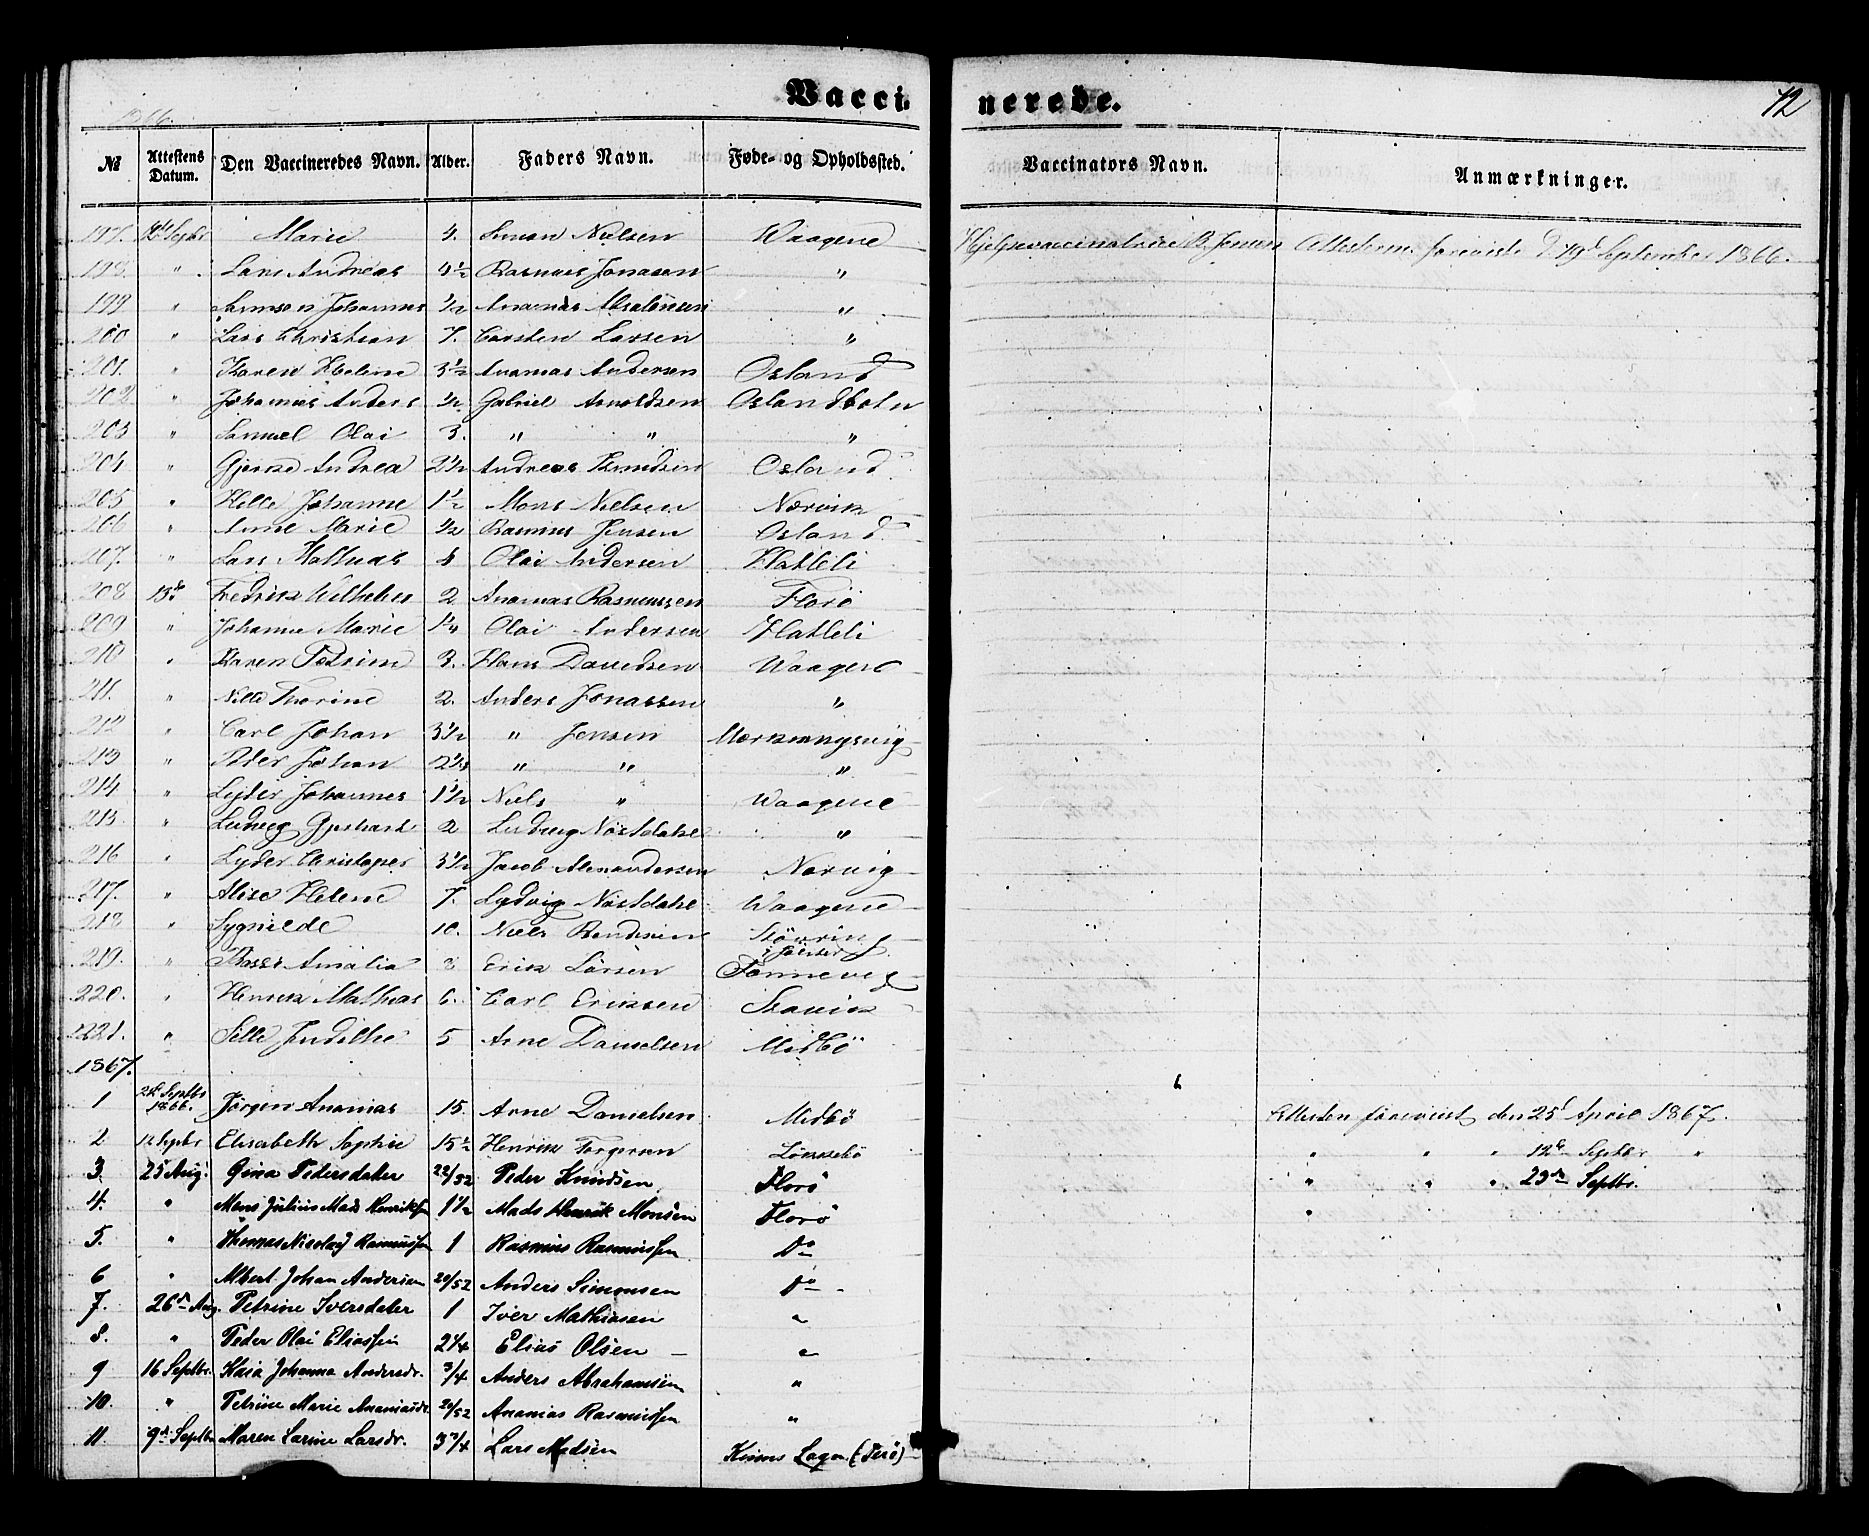 Vaccinerede.
12
1866.
№ Attestens Datum. Den Vaccineredes Navn. Alder. Faders Navn. Føde- og Opholdssted. Vaccinators Navn. Anmærkninger.
197. 12te Septbr Marie 4. Simon Nielsen Waagene Hjelpevaccinatrice B. Jensen Attesterne foreviste d. 19d September 1866.
198. " Lars Andreas 4½ Rasmus Jonasen "
199 " Samson Johannes ½ Ananias Absalonsen "
200 " Lars Christian 7. Carsten Larsen "
201. " Karen Helene 3½ Ananias Andersen Osland
202 " Johannes Anders ½ Gabriel Arnoldsen Oslandbotn
203 " Samuel Olai 3. " " "
204 " Gjerne Andrea 2½ Andreas Knudsen Osland
205 " Helle Johanne 1½ Mons Nielsen Nærvik
206 " Anne Marie ½ Rasmus Jensen Osland
207. " Lars Mathias 8 Olai Andersen Hatleli
208 13de Fredrik Wilhelm 2 Ananias Rasmussen Florö
209 " Johanne Marie 1¼ Olai Andersen Hatleli
210 " Karen Petrine 3. Hans Davidsen Waagene
211. " Nille Thorine 2. Anders Jonassen "
212 " Carl Johan 3½ " Jensen Mærkningsvig
213 " Peder Johan 2⅓ " " "
214 " Lyder Johannes 1½ Niels " Waagene
215 " Ludvig Gjerhard 2 Ludvig Nöstdahl "
216 " Lyder Christopher 3½ Jacob Alexandersen Norvig
217. " Alise Helene 7. Lydvig Nöstdahl Waagene
218 " Sygnilde 10. Niels Bendixen Stövring i Jölster
219. " Basse Amalia 8 Erik Larsen Tonnevig
220. " Henrik Mathias 6. Carl Eriksen Stavik
221. " Sille Judithe 5 Arne Danielsen Midbö
1867.
1 2de Septbr 1866. Jörgen Ananias 15. Arne Danielsen Midbö Attesten forevist den 25d April 1867.
2 12 Septbr Elisabeth Sophie 15½ Henrik Torgersen Lönnebö " " " 12te Septbr "
3 25 Aug. Gina Pedersdater 22/52 Peder Knudsen Florö " " " 23de Septbr.
4. " Mons Julius Mads Henriksen 1½ Mads Henrik Monsen Florö "
5. " Thomas Nicolay Rasmussen 1 Rasmus Rasmussen Do
6 " Albert Johan Andersen 20/52 Anders Simonsen Do
7. 26de Aug. Petrine Iversdater 1 Iver Mathiasen "
8. " Peder Olai Eliassen 2¼ Elias Olsen "
9 16 Septbr. Kaia Johanna Andersdr. ¾ Anders Abrahamsen "
10. " Petrine Marie Ananiasdr. 20/52 Ananias Rasmussen "
11. 9de Septbr Maren Sarine Larsdr. 3¾ Lars Madsen Kinns Sogn (Terö)